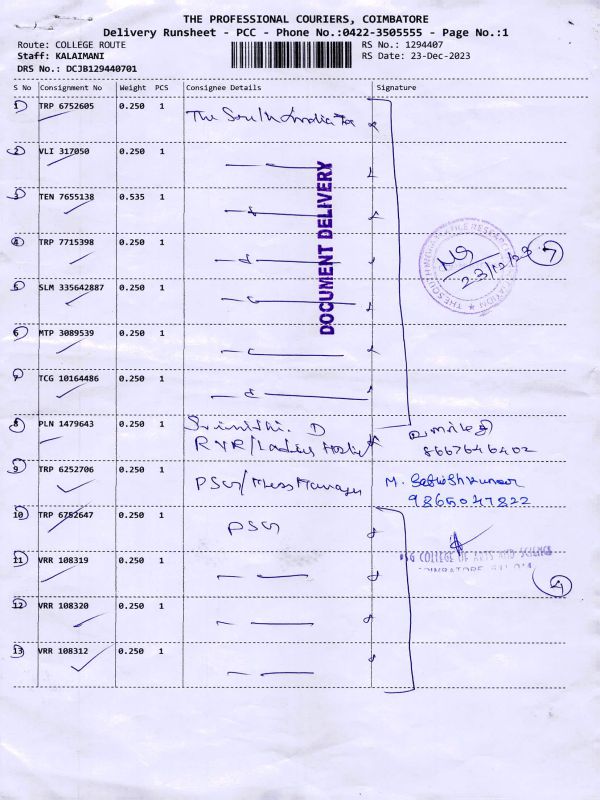 THE PROFESSIONAL COURIERS, COIMBATORE
Delivery Runsheet - PCC - Phone No.:0422-3505555 - Page No.:1
Route: COLLEGE ROUTE
RS No.: 1294407
Staff: KALAIMANI
RS Date: 23-Dec-2023
DRS No.: DCJB129440701
S No Consignment No Weight PCS Consignee Details Signature
1 TRP 6752605 0.250 1 The South India
2 VLI 317050 0.250 1
3 TEN 7655138 0.535 1
4 TRP 7715398 0.250 1
5 SLM 335642887 0.250 1
6 MTP 3089539 0.250 1
7 TCG 10164486 0.250 1
8 PLN 1479643 0.250 1 Srinithi. D
RVR/Ladies Hostel
8667646402
9 TRP 6252706 0.250 1 PSG/Mess Manager M. Sathish kumar
9865047822
10 TRP 6752647 0.250 1 PSG
11 VRR 108319 0.250 1
12 VRR 108320 0.250 1
13 VRR 108312 0.250 1
DOCUMENT DELIVERY
23/12/23
7
PSG COLLEGE OF ARTS AND SCIENCE
4